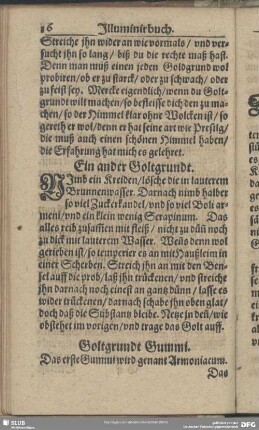 16 Illuminirbuch.
Streiche ihn wider an wie vormals / vnd ver-
sucht ihn so lang / biß du die rechte maß hast.
Denn man muß einen jeden Goldgrund wol
probiren / ob er zu starck / oder zu schwach / oder
zu feist sey. Mercke eigendlich / wenn du Golt-
grundt wilt machen / so befleisse dich den zu ma-
chen / so der Himmel klar ohne Wolcken ist / so
gereth er wol / denn er hat seine art wie Presilg /
die muß auch einen schönen Himmel haben /
die Erfahrung hat mich es gelehret.
Ein ander Goltgrundt.
Nimb ein Kreiden / lösche die in lauterem
Brunnenwasser. Darnach nimb halber
so viel Zuckerkandel / vnd so viel Boli ar-
meni / vnd ein klein wenig Serapinum. Das
alles reib zusam̃en mit fleiß / nicht zu dün̄ noch
zu dick mit lauterem Wasser. Weñs denn wol
gerieben ist / so temperier es an mit Haußleim in
einer Scherben. Streich ihn an mit den Ben-
sel auff die prob / laß ihn trückenen / vnd streiche
ihn darnach noch einest an gantz dünn / lasse es
wider trückenen / darnach schabe ihn oben glat /
doch daß die Substantz bleibe. Netze in deñ / wie
obstehet im vorigen / vnd trage das Golt auff.
Goltgrundt Gummi.
Das erste Gummi wird genant Armoniacum.
Das
SLUB
DFG